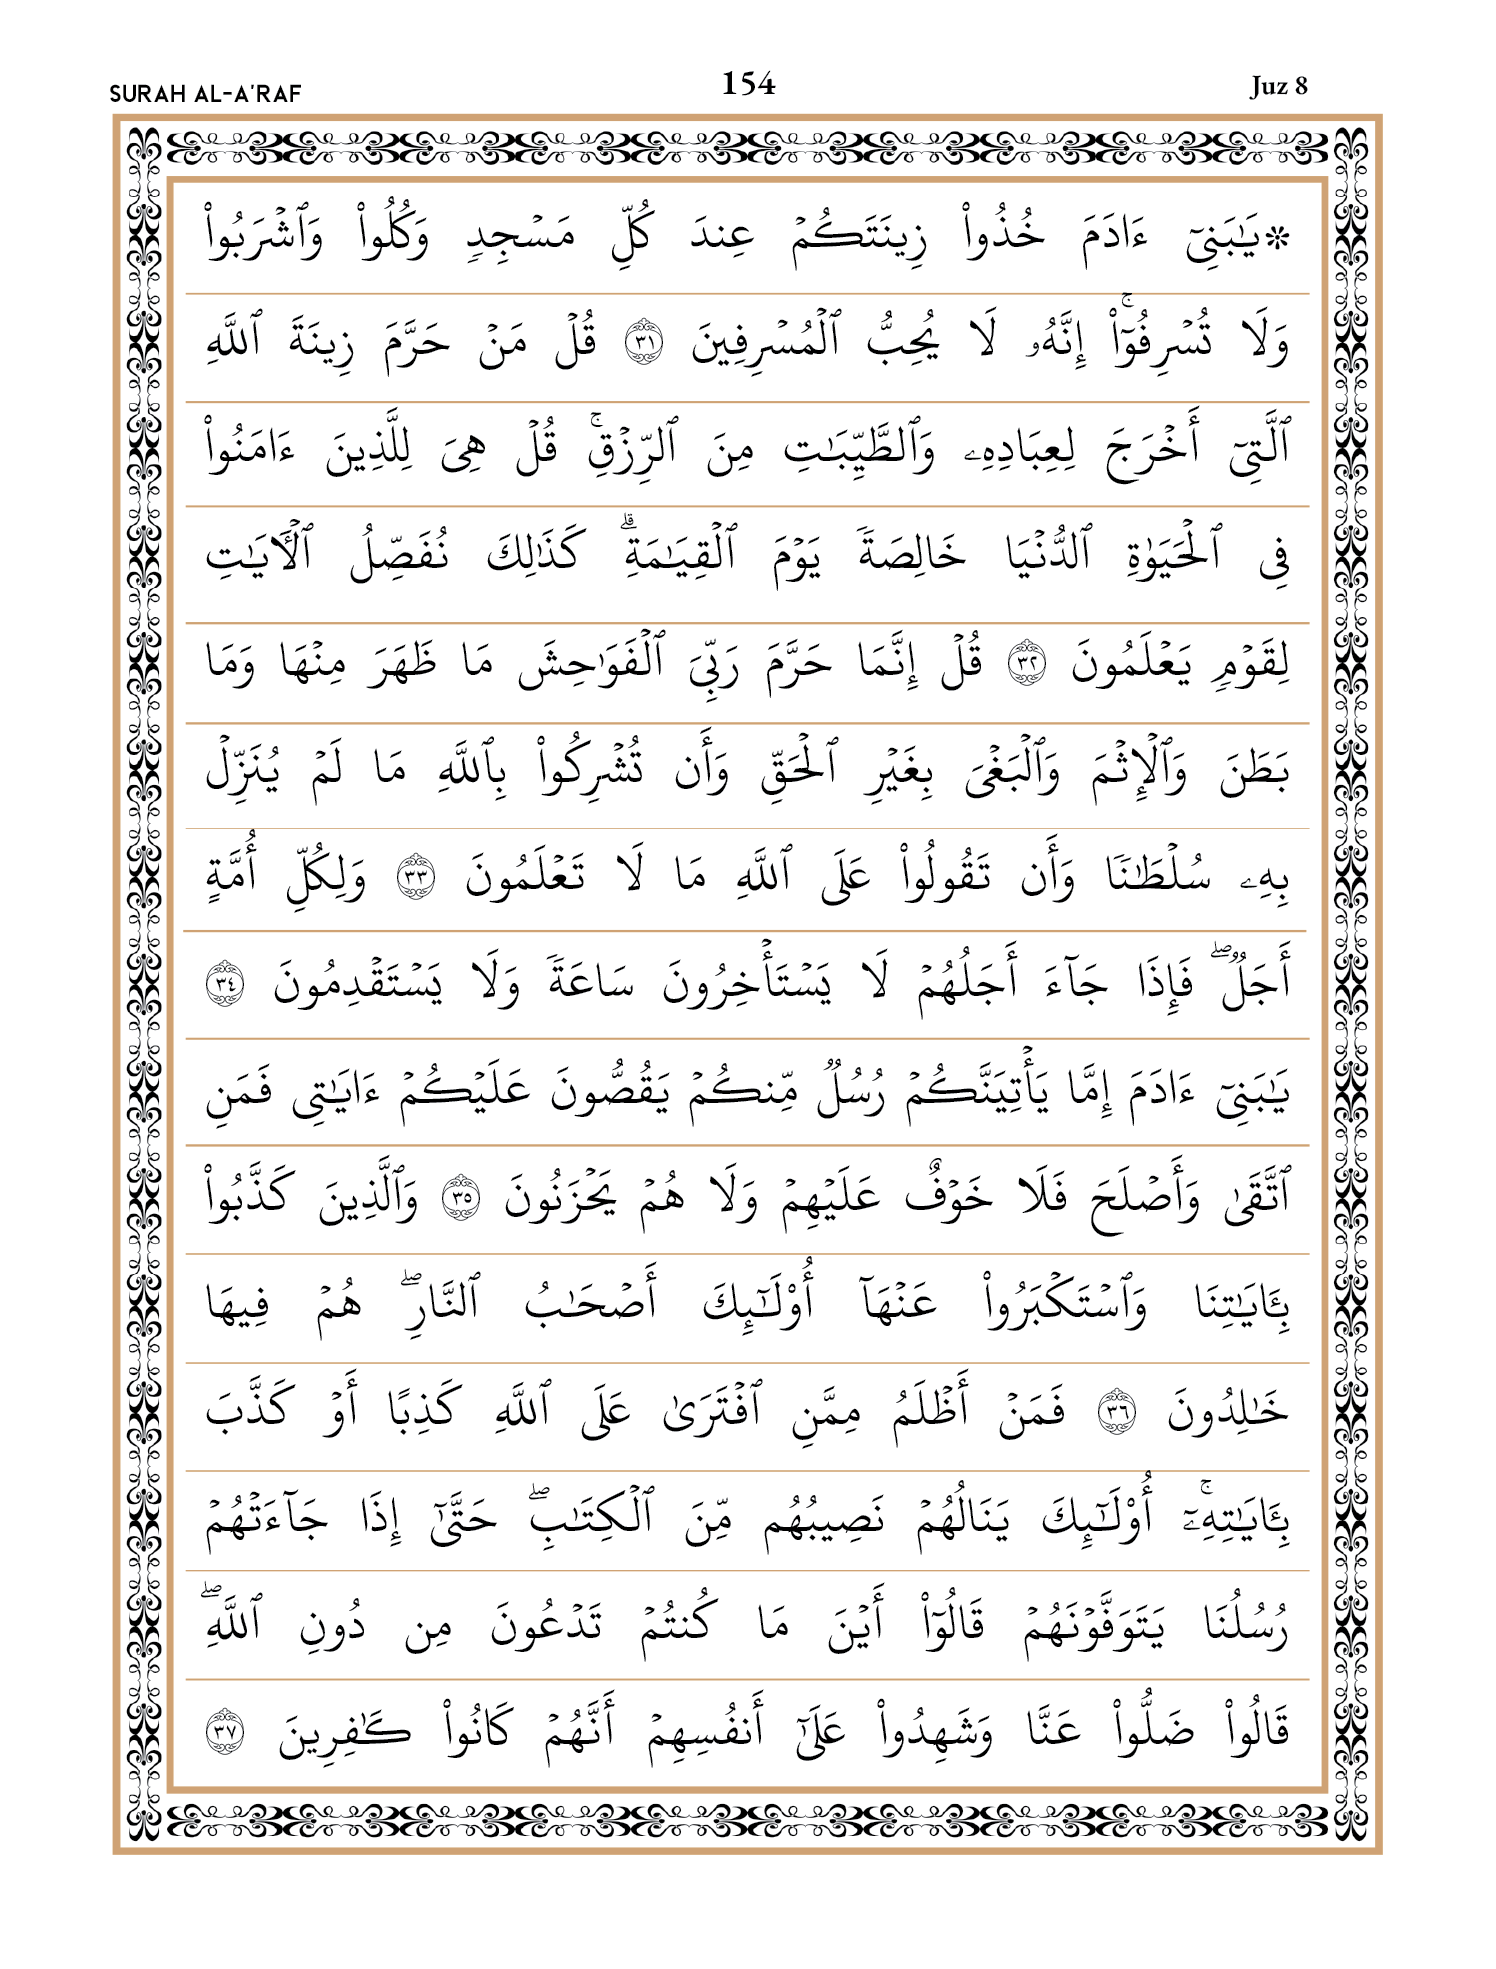 SURAH AL-A'RAF 154 Juz 8
۞يَـٰبَنِىٓ ءَادَمَ خُذُوا۟ زِينَتَكُمْ عِندَ كُلِّ مَسْجِدٍ وَكُلُوا۟ وَٱشْرَبُوا۟
وَلَا تُسْرِفُوٓا۟ ۚ إِنَّهُۥ لَا يُحِبُّ ٱلْمُسْرِفِينَ ٣١ قُلْ مَنْ حَرَّمَ زِينَةَ ٱللَّهِ
ٱلَّتِىٓ أَخْرَجَ لِعِبَادِهِۦ وَٱلطَّيِّبَـٰتِ مِنَ ٱلرِّزْقِ ۚ قُلْ هِىَ لِلَّذِينَ ءَامَنُوا۟
فِى ٱلْحَيَوٰةِ ٱلدُّنْيَا خَالِصَةً يَوْمَ ٱلْقِيَـٰمَةِ ۗ كَذَٰلِكَ نُفَصِّلُ ٱلْـَٔايَـٰتِ
لِقَوْمٍ يَعْلَمُونَ ٣٢ قُلْ إِنَّمَا حَرَّمَ رَبِّىَ ٱلْفَوَٰحِشَ مَا ظَهَرَ مِنْهَا وَمَا
بَطَنَ وَٱلْإِثْمَ وَٱلْبَغْىَ بِغَيْرِ ٱلْحَقِّ وَأَن تُشْرِكُوا۟ بِٱللَّهِ مَا لَمْ يُنَزِّلْ
بِهِۦ سُلْطَـٰنًا وَأَن تَقُولُوا۟ عَلَى ٱللَّهِ مَا لَا تَعْلَمُونَ ٣٣ وَلِكُلِّ أُمَّةٍ
أَجَلٌ ۖ فَإِذَا جَآءَ أَجَلُهُمْ لَا يَسْتَأْخِرُونَ سَاعَةً وَلَا يَسْتَقْدِمُونَ ٣٤
يَـٰبَنِىٓ ءَادَمَ إِمَّا يَأْتِيَنَّكُمْ رُسُلٌ مِّنكُمْ يَقُصُّونَ عَلَيْكُمْ ءَايَـٰتِى فَمَنِ
ٱتَّقَىٰ وَأَصْلَحَ فَلَا خَوْفٌ عَلَيْهِمْ وَلَا هُمْ يَحْزَنُونَ ٣٥ وَٱلَّذِينَ كَذَّبُوا۟
بِـَٔايَـٰتِنَا وَٱسْتَكْبَرُوا۟ عَنْهَآ أُو۟لَـٰٓئِكَ أَصْحَـٰبُ ٱلنَّارِ ۖ هُمْ فِيهَا
خَـٰلِدُونَ ٣٦ فَمَنْ أَظْلَمُ مِمَّنِ ٱفْتَرَىٰ عَلَى ٱللَّهِ كَذِبًا أَوْ كَذَّبَ
بِـَٔايَـٰتِهِۦٓ ۚ أُو۟لَـٰٓئِكَ يَنَالُهُمْ نَصِيبُهُم مِّنَ ٱلْكِتَـٰبِ ۖ حَتَّىٰٓ إِذَا جَآءَتْهُمْ
رُسُلُنَا يَتَوَفَّوْنَهُمْ قَالُوٓا۟ أَيْنَ مَا كُنتُمْ تَدْعُونَ مِن دُونِ ٱللَّهِ ۖ
قَالُوا۟ ضَلُّوا۟ عَنَّا وَشَهِدُوا۟ عَلَىٰٓ أَنفُسِهِمْ أَنَّهُمْ كَانُوا۟ كَـٰفِرِينَ ٣٧